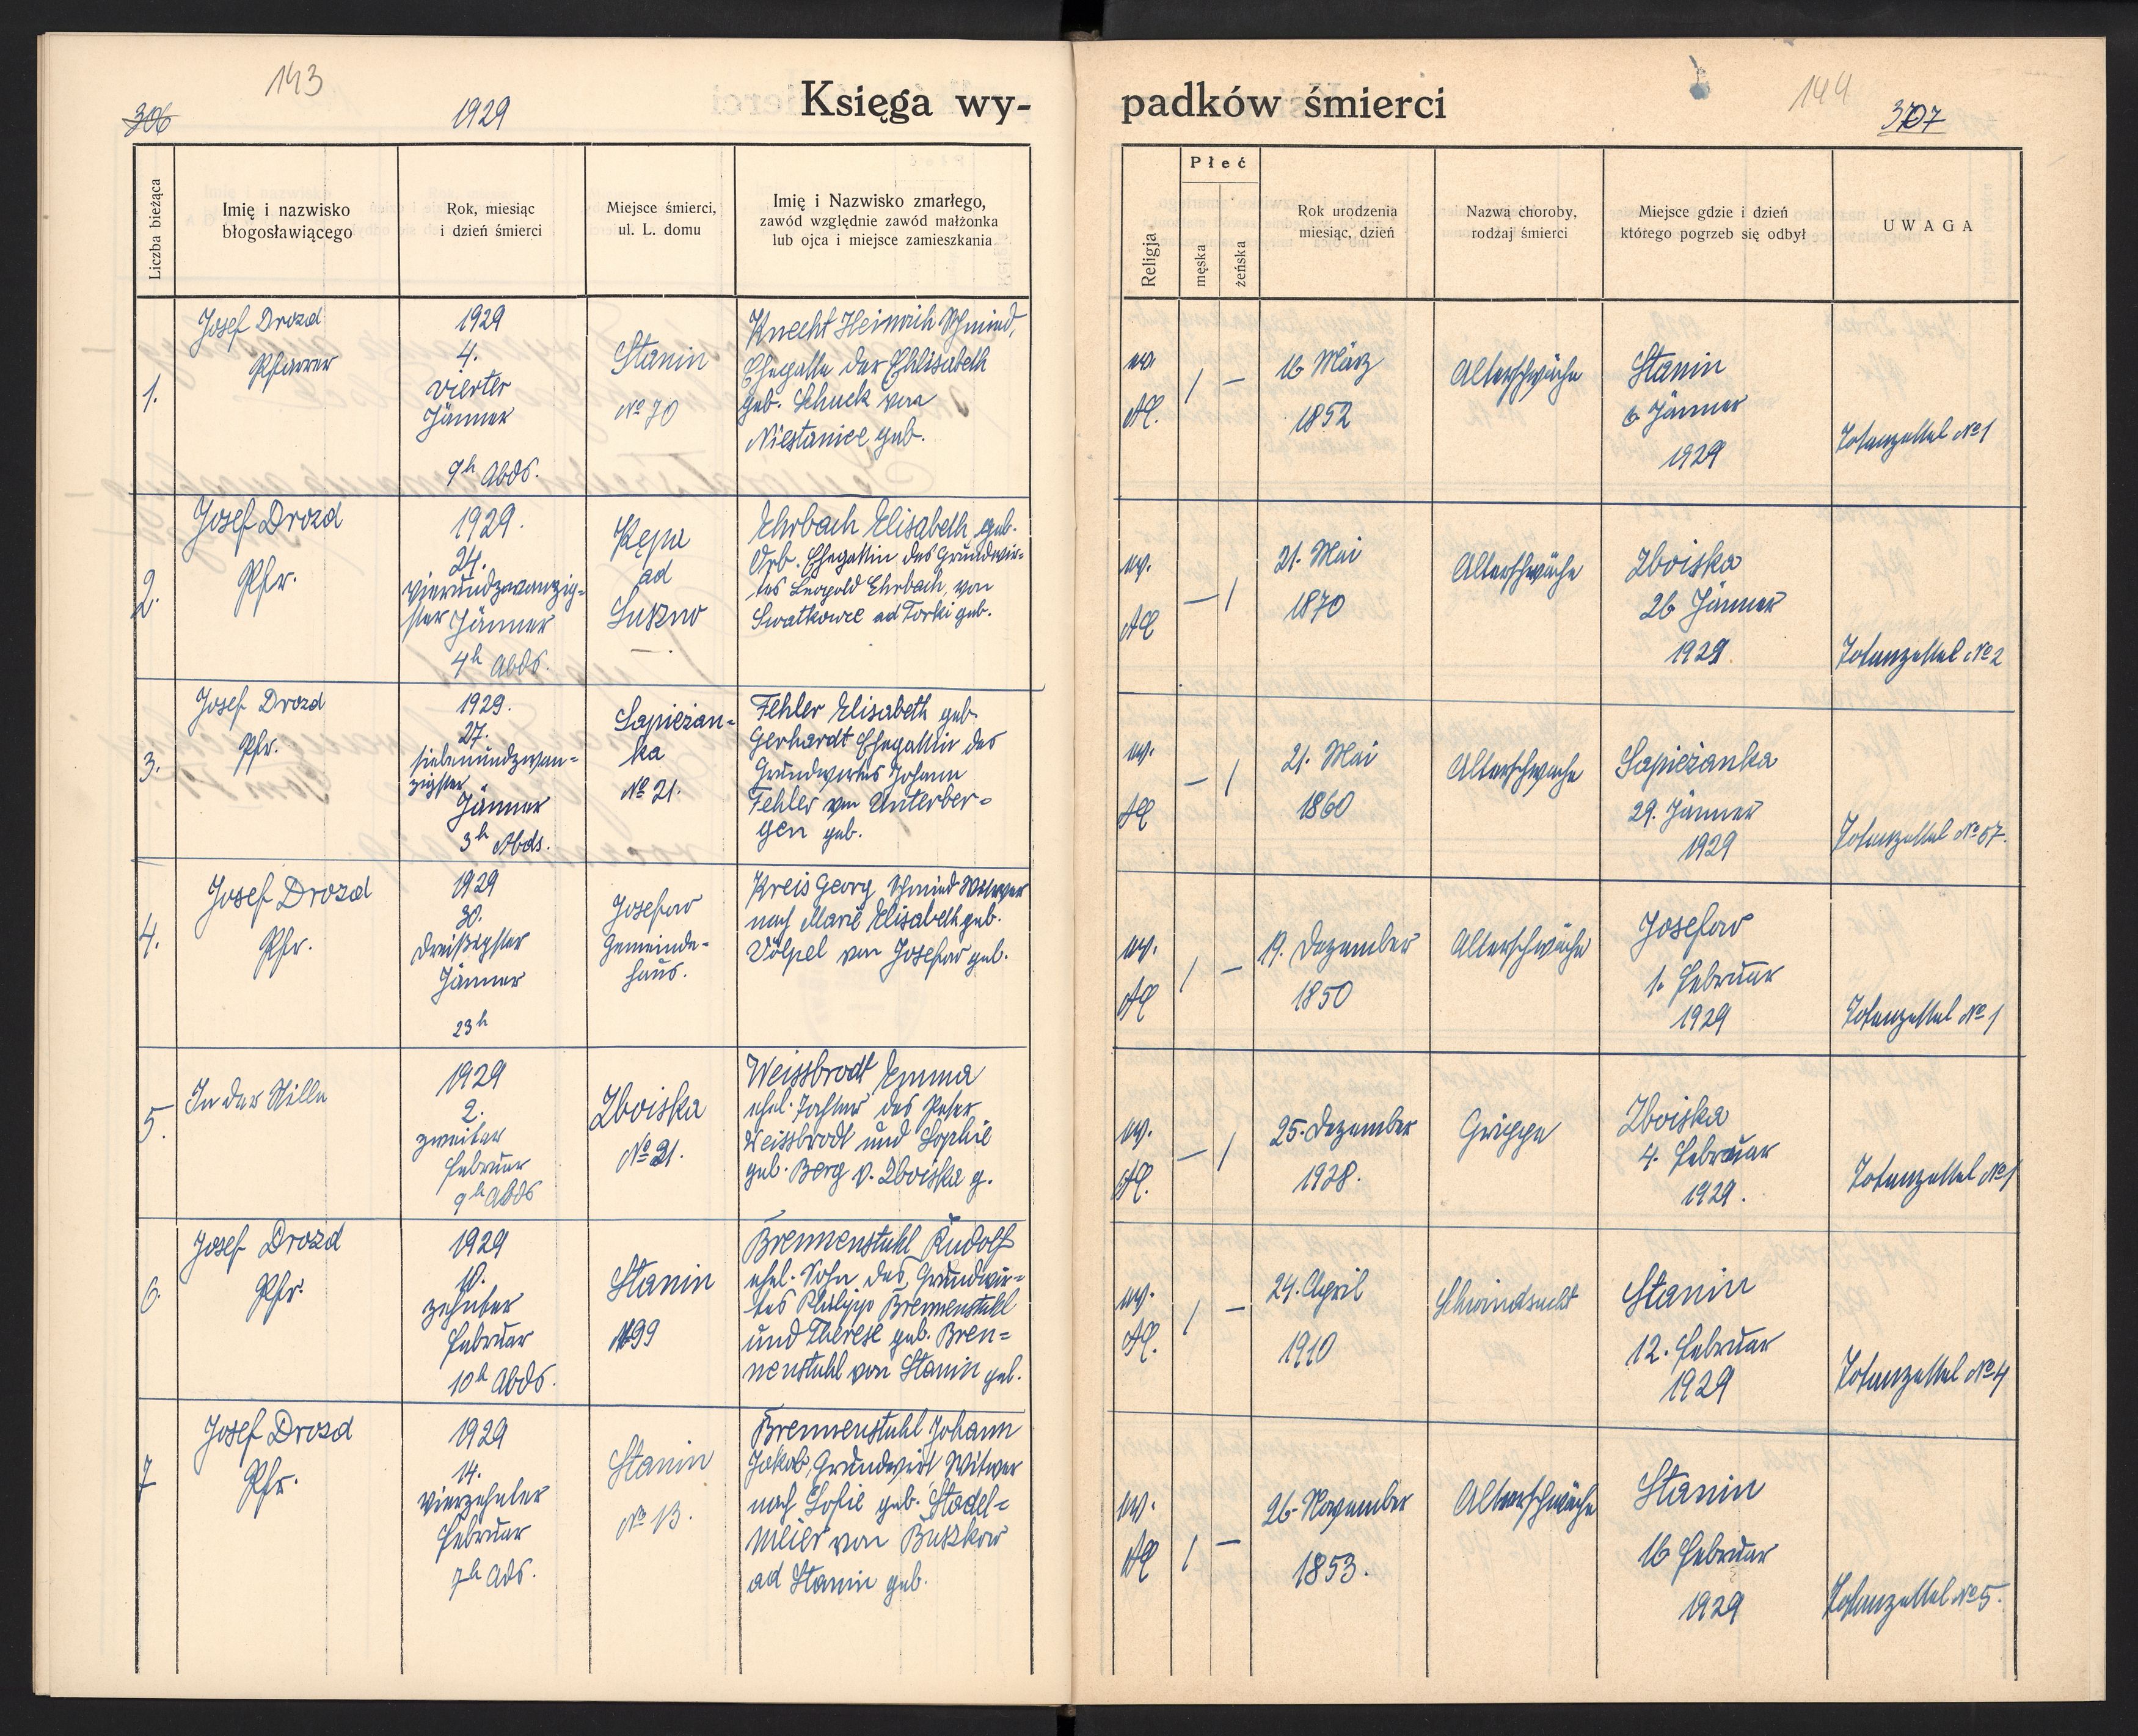 143
306
1929
Księga wy-
Liczba bieżąca
Imię i nazwisko
błogosławiącego
Rok, miesiąc
i dzień śmierci
Miejsce śmierci,
ul. L. domu
Imię i Nazwisko zmarłego,
zawód względnie zawód małżonka
lub ojca i miejsce zamieszkania
1.
Josef Drozd
Pfarrer
1929
4.
vierter
Jänner
9h Abds.
Stanin
No 70
Knecht Heinrich Schmied,
Ehegatte der Ehlisabeth
geb. Schuck von
Niestanice geb.
2.
Josef Drozd
Pfr.
1929.
24.
vierundzwanzig-
ster Jänner
4h Abds.
Kępa
ad
Suszno
Ehrbach Elisabeth geb.
Orb. Ehegattin des Grundwir=
tes Leopold Ehrbach, von
Swatkowce ad Torki geb.
3.
Josef Drozd
Pfr.
1929.
27.
siebenundzwan=
zigster
Jänner
3h Abds.
Sapieżan=
ka
No 21.
Fehler Elisabeth geb.
Gerhardt Ehegattin des
Grundwirtes Johann
Fehler von Unterber=
gen geb.
4.
Josef Drozd
Pfr.
1929
30.
Dreißigster
Jänner
23h
Josefow
Gemeinde-
haus.
Kreis Georg Schmied Witwer
nach Marie Elisabeth geb.
Völpel von Josefow geb.
5.
In der Stille
1929
2.
zweiter
Februar
9h Abds
Zboiska
No 21.
Weissbrodt Emma
ehel. Tochter des Peter
Weissbrodt und Sophie
geb. Berg v. Zboiska g.
6.
Josef Drozd
Pfr.
1929
10.
zehnter
Februar
10h Abds.
Stanin
No 99
Brennenstuhl Rudolf
ehel. Sohn des Grundwir=
tes Philipp Brennenstuhl
und Therese geb. Bren=
nenstuhl von Stanin geb.
7
Josef Drozd
Pfr.
1929
14.
Vierzehnter
Februar
7h Ads.
Stanin
No 13.
Brennenstuhl Johann
Jakob, Grundwirt Witwer
nach Sofie geb. Stadel=
meier von Buszkow
ad Stanin geb.
padków śmierci
144
307
Religja
Płeć
męska
żeńska
Rok urodzenia
miesiąc, dzień
Nazwą choroby,
rodzaj śmierci
Miejsce gdzie i dzień
którego pogrzeb się odbył
UWAGA
ev.
AC.
/ –
16 März
1852
Alterschwäche
Stanin
6 Jänner
1929
Totenzettel No 1
ev.
AC
– /
21. Mai
1870
Alterschwäche
Zboiska
26 Jänner
1929.
Totenzettel No 2
ev.
AC
– /
21. Mai
1860
Alterschwache
Sapieżanka
29. Jänner
1929
Totenzettel No 67.
ev.
AC
/ –
19. Dezember
1850
Alterschwäche
Josefow
1. Februar
1929
Totenzettel No 1
ev.
AC.
– /
25. Dezember
1928.
Grippe
Zboiska
4. Februar
1929.
Totenzettel No 1
ev.
AC.
/ –
24. April
1910
Schwindsucht
Stanin
12. Februar
1929
Totenzettel No 4
ev.
AC
/ –
26. November
1853.
Alterschwäche
Stanin
16 Februar
1929
Totenzettel No 5.